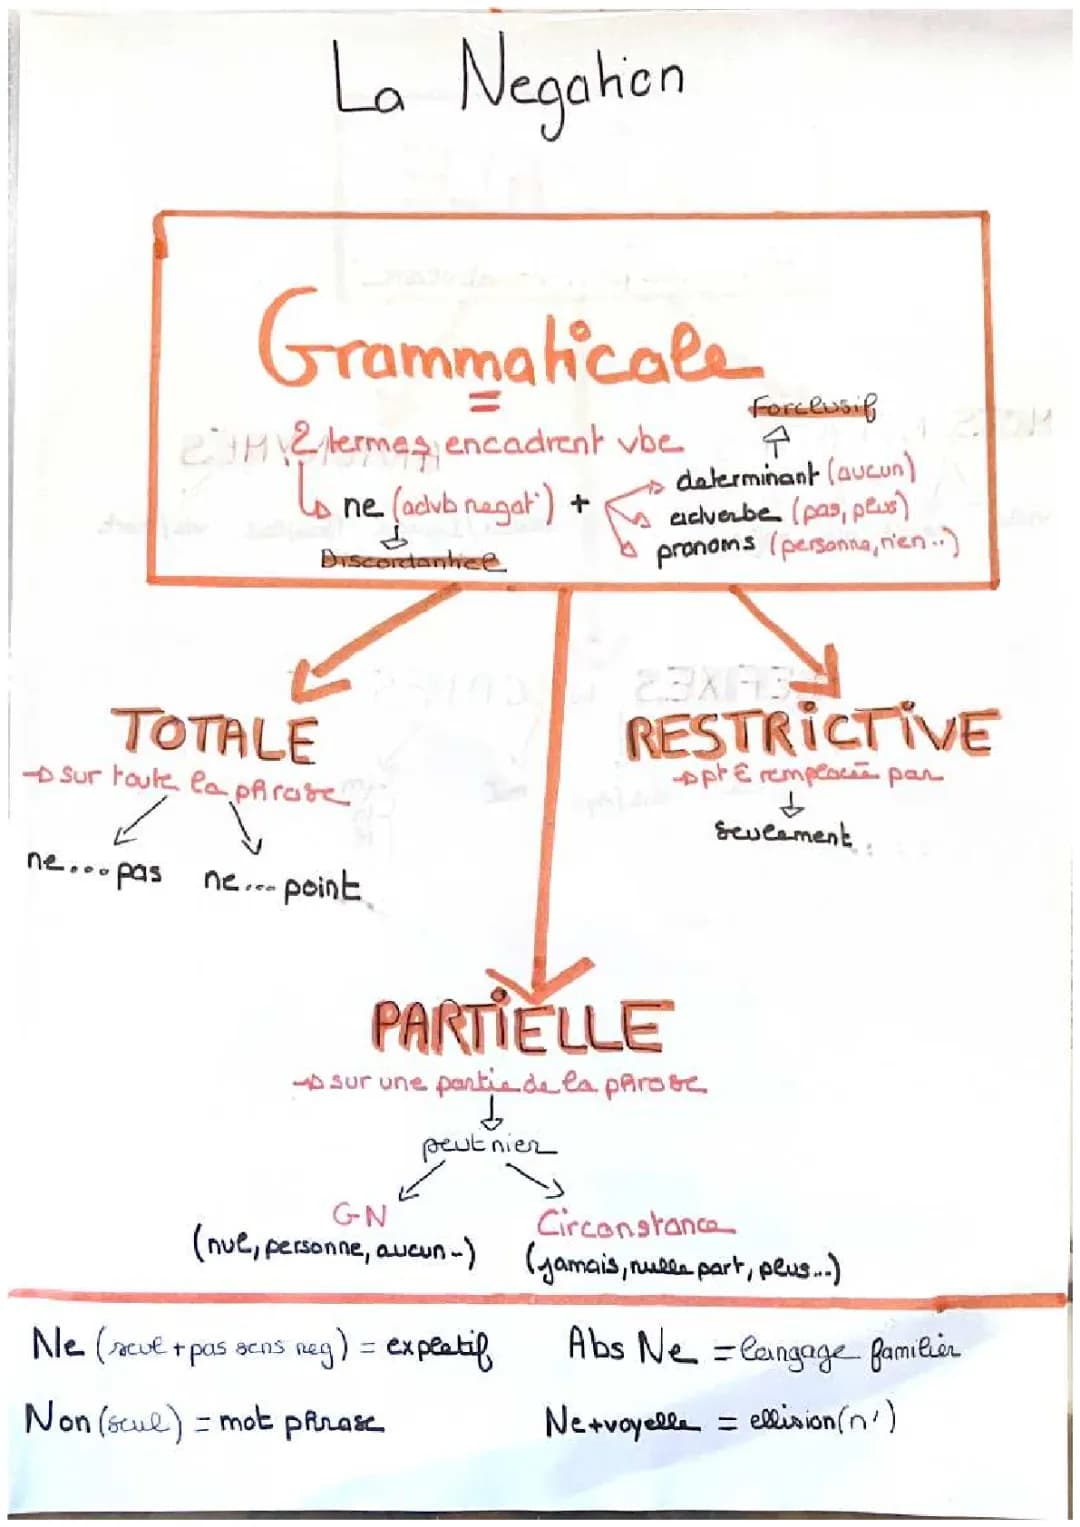 La Negation
Grammaticale
=
Forclusif
2 termes encadrent vbe
determinant (aucun)
ne (advb negat°) +
adverbe (pas, plus)
pronoms (personne, rien..)
Discordantiel
TOTALE
RESTRICTIVE
sur toute la phrase
pt ê remplacée par
seulement
ne....pas ne....point
PARTIELLE
sur une partie de la phrase
peut nier
GN
Circonstance
(nul, personne, aucun..)
(jamais, nulle part, plus...)
Ne (seul + pas sens neg) = expletif
Abs Ne = langage familier
Non (seul) = mot phrase
Ne+voyelle = ellision (n')